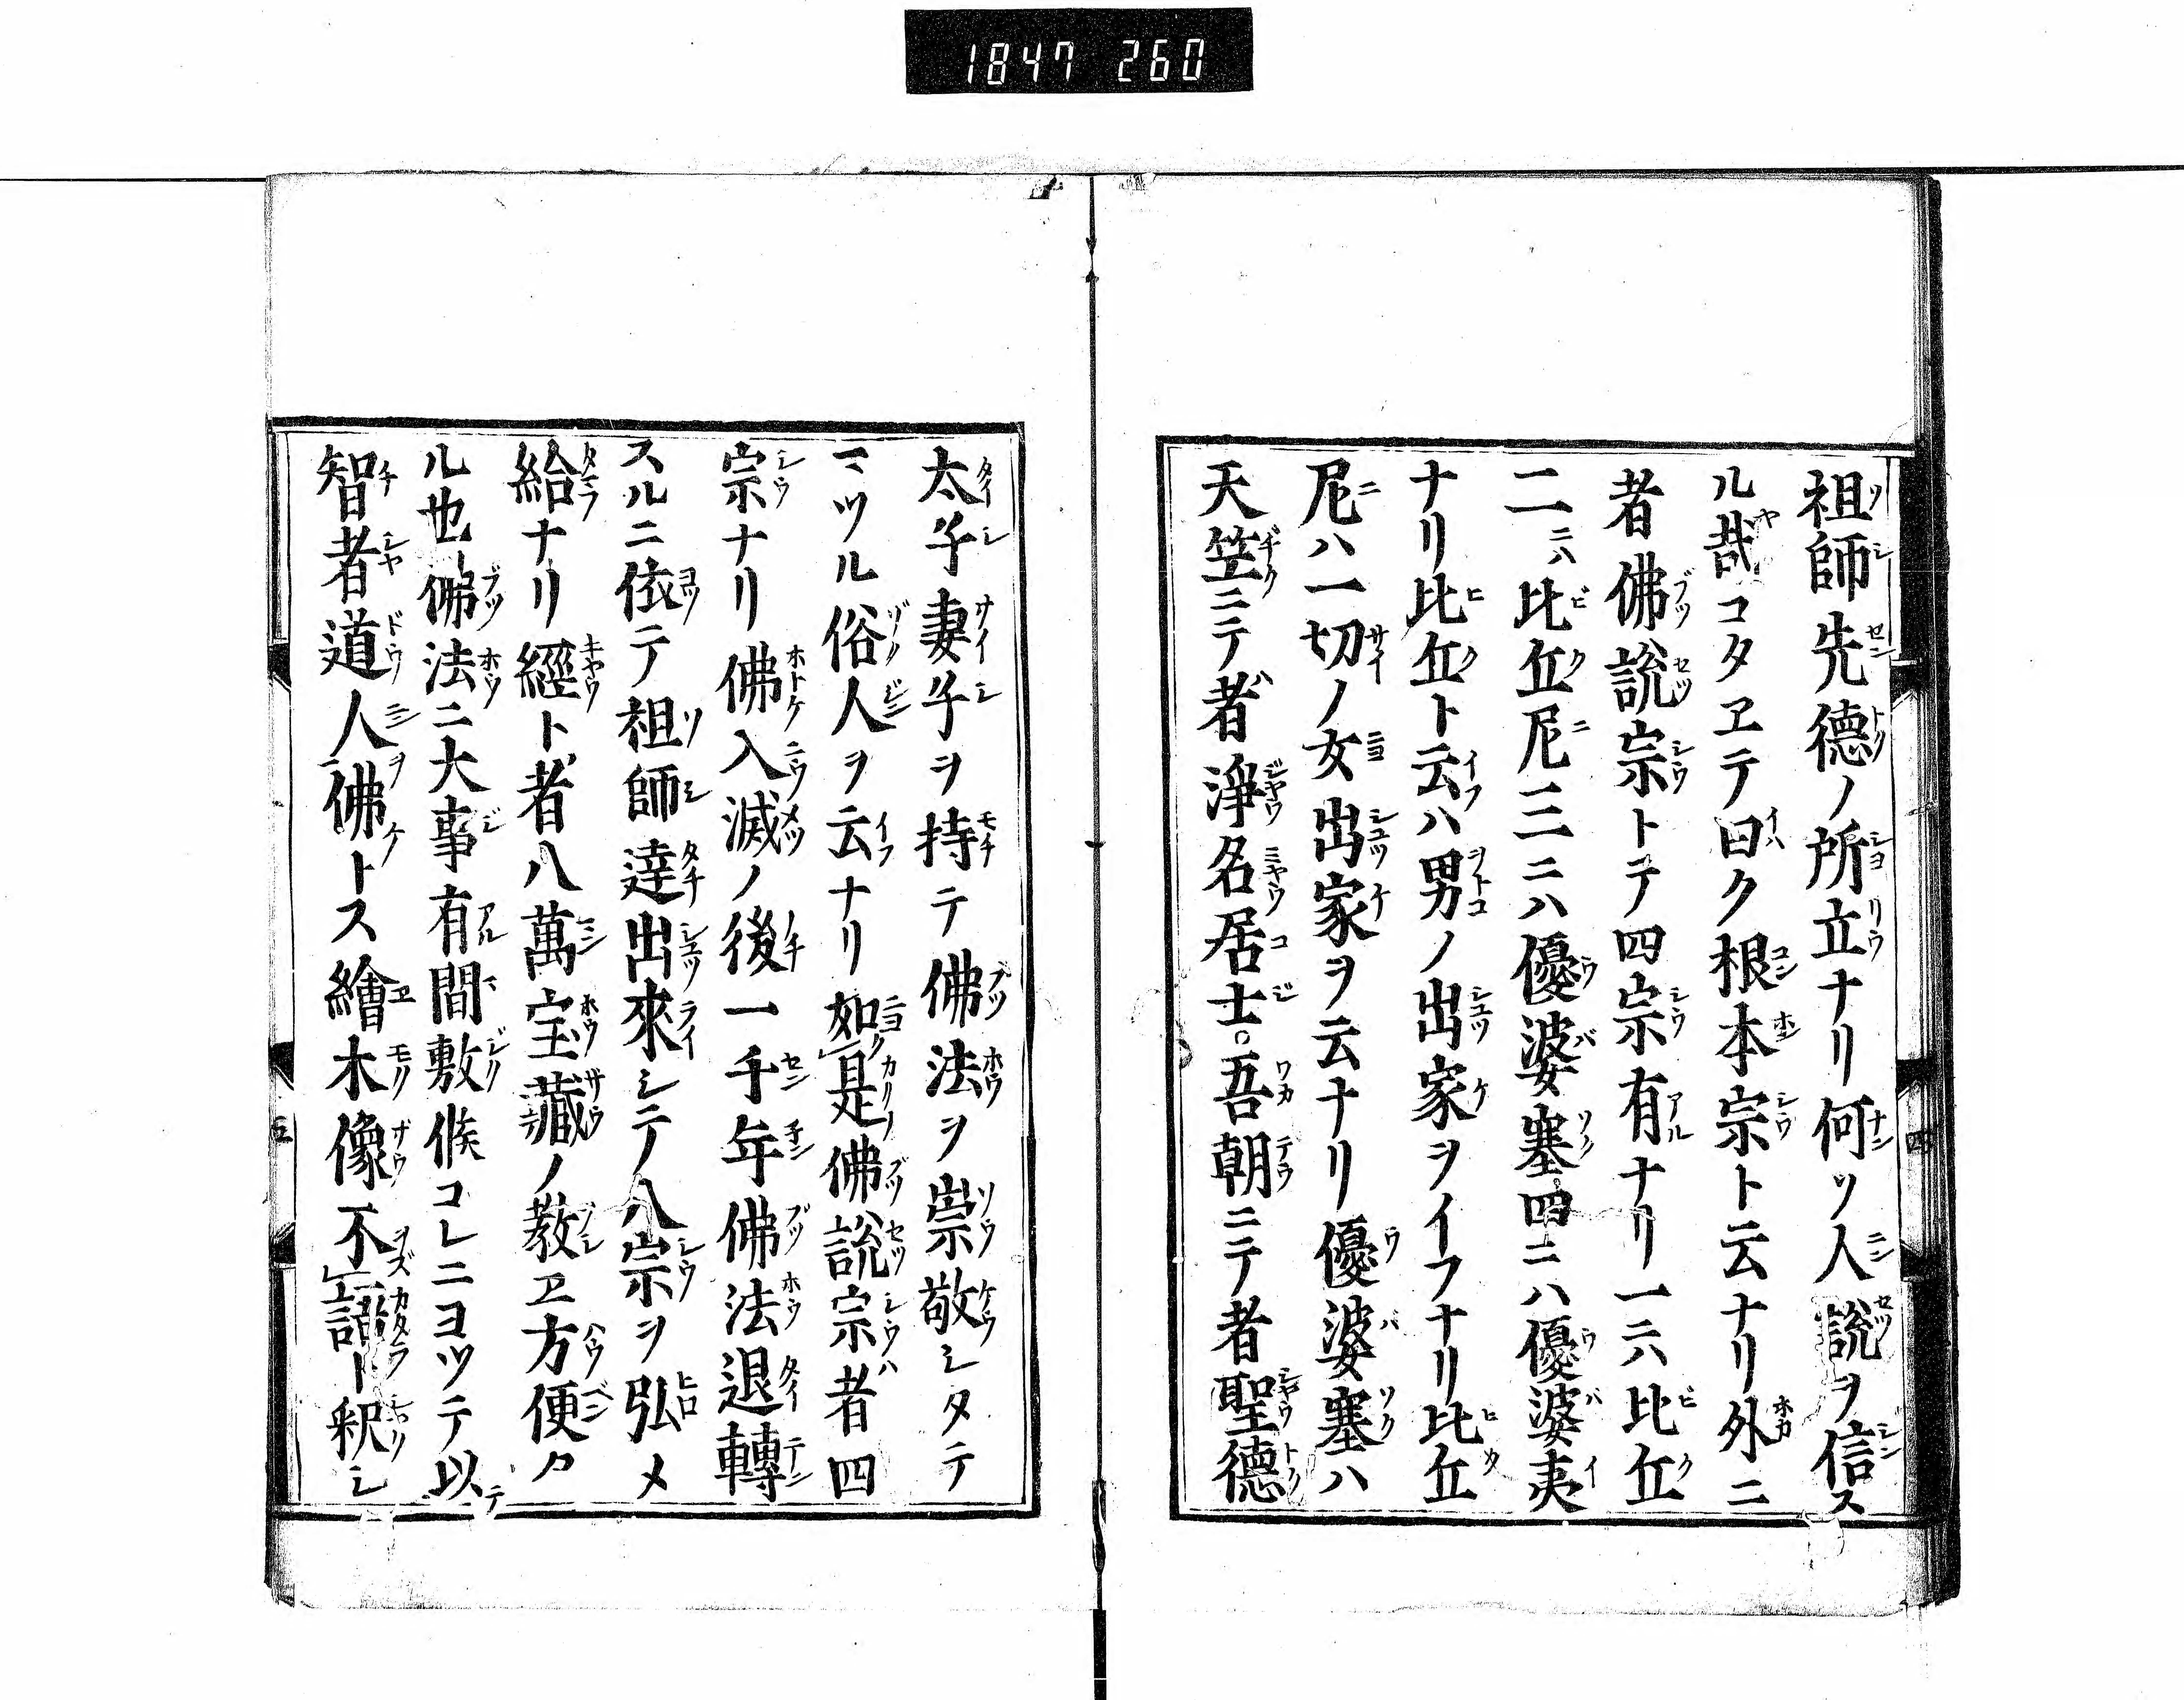 1847 260
祖師先德ノ所立ナリ何ツ人說ヲ信ス
ル哉コタヱテ曰ク根本宗ト云ナリ外ニ
者佛說宗トテ四宗有ナリ一六比丘
二ニハ比丘尼三ニハ優婆塞四ニハ優婆夷
ナリ比丘ト云ハ男ノ出家ヲイフナリ比丘
尼ハ一切ノ女出家ヲ云ナリ優婆塞ハ
天笠ニテ者淨名居士。吾朝ニテ者聖德
四
太子妻子ヲ持テ佛法ヲ崇敬シタテ
マツル俗人ヲ云ナリ如是佛說宗者四
宗ナリ佛入滅ノ後一千年佛法退轉
スルニ依テ祖師達出來シテ八宗ヲ弘メ
給ナリ經ト者八萬宝藏ノ教ヱ方便タ
ル也佛法ニ大事有間敷候コレニヨツテ以
智者道人佛トス繪木像不語ト釈シ
五